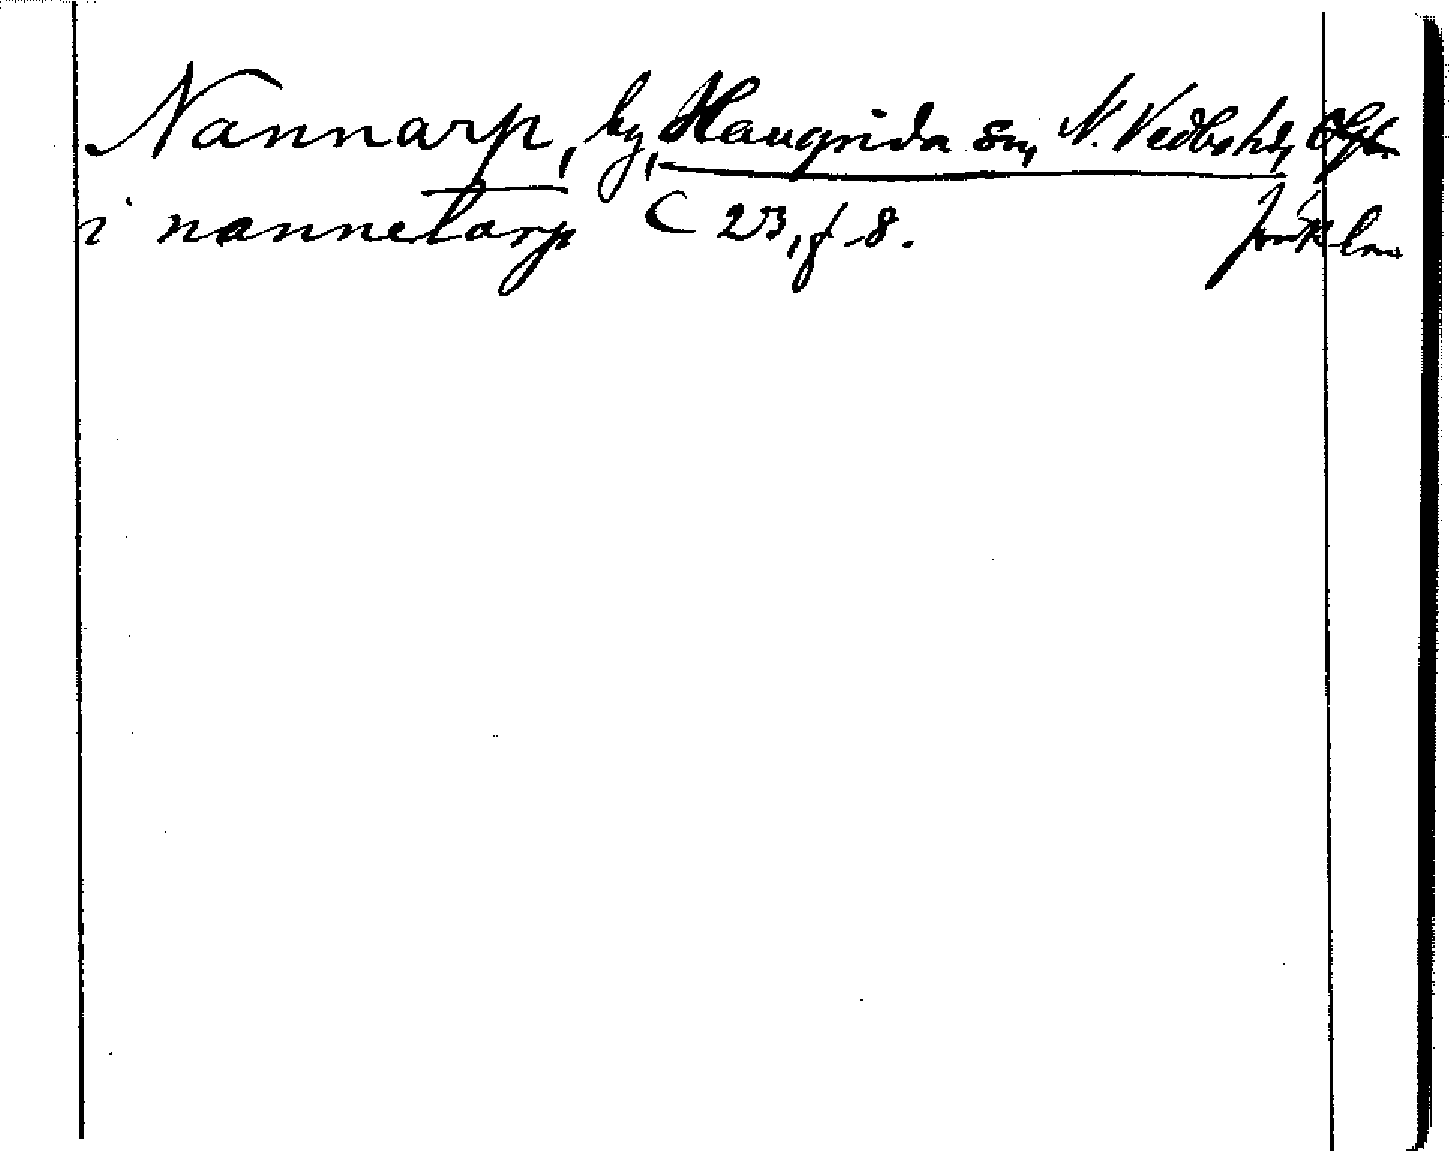 Nannarp, by, Haugrida sn, N. Vedbo hd, Ögtl.
i nannetarp C 23, f 8. Jönk ln.